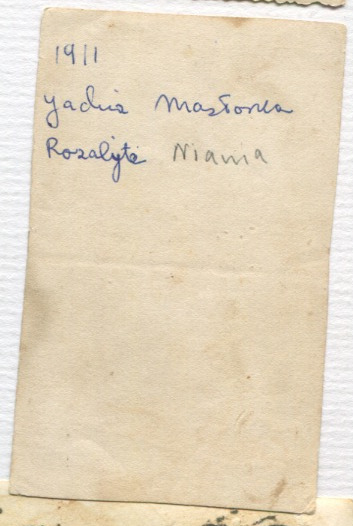 1911
Jadzia Masłonka
Rozalytė Niania